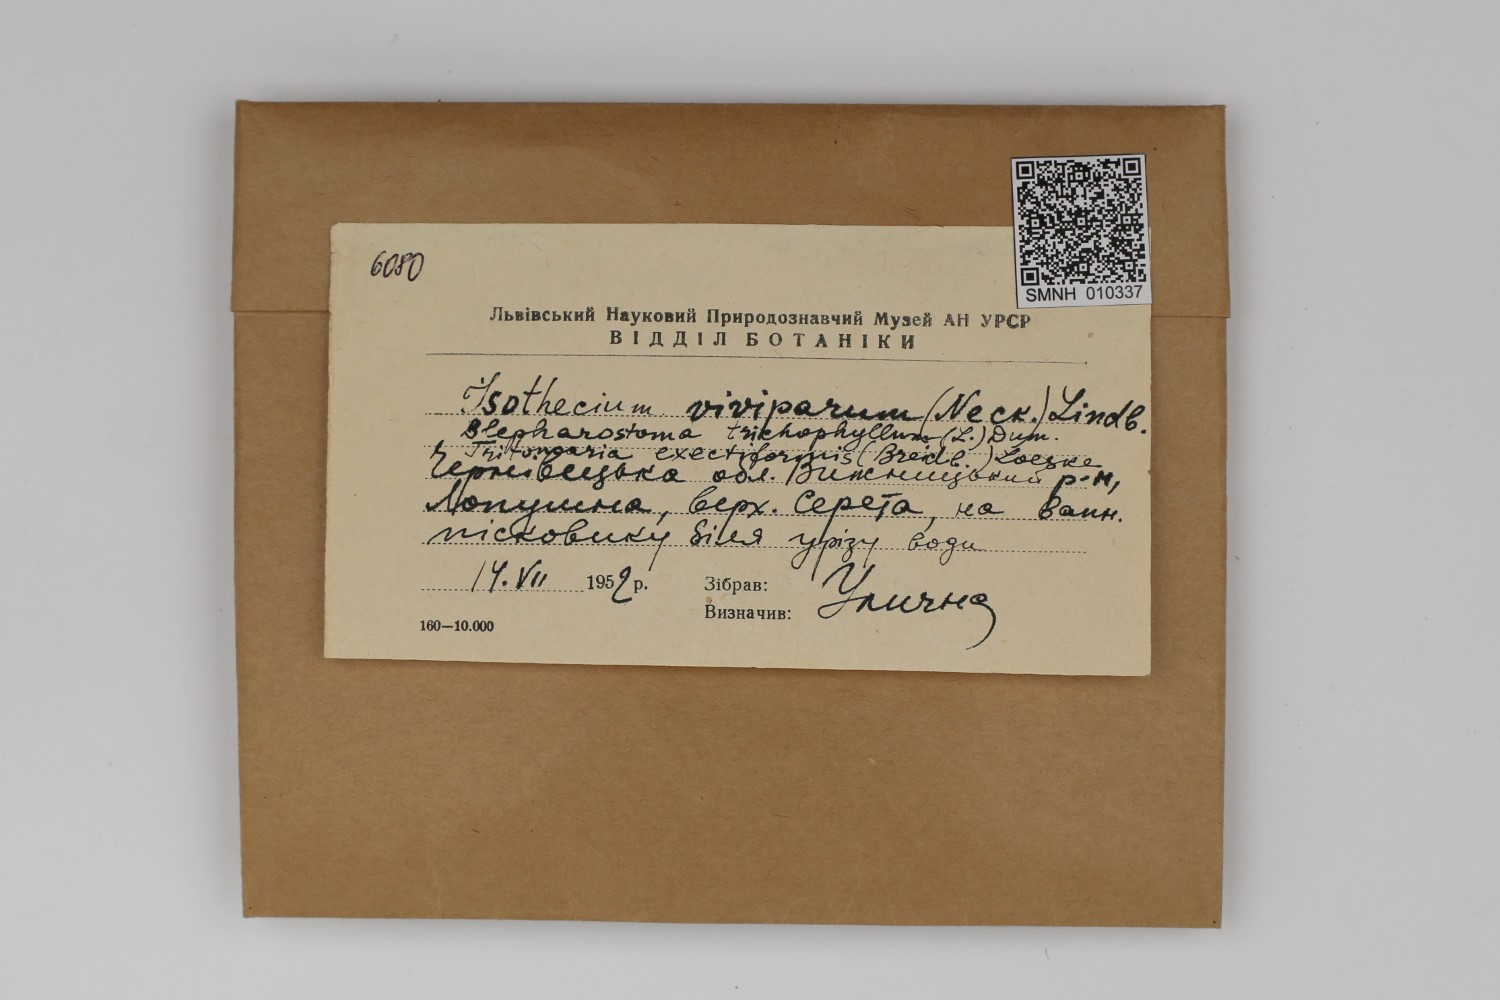 SMNH 010337
6080
Львівський Науковий Природознавчий Музей АН УРСР
ВІДДІЛ БОТАНІКИ
Isothecium viviparum (Neck.) Lindb.
Blepharostoma trichophyllum (L.) Dum.
Tritomaria exectiformis (Breidl.) Loeske
Чернівецька обл. Вижницький р-н,
Лопушна, верх. Серета, на вапн.
пісковику біля урізу води
14.VII 1952 р. Зібрав: Улична
Визначив:
160—10.000